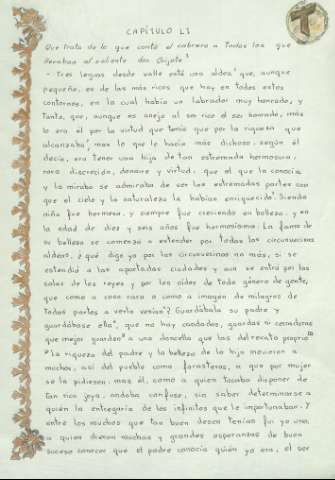 CAPÍTULO LI
Que trata de lo que contó el cabrero a todos los que
llevaban al valiente don Quijote
- Tres leguas deste valle está una aldea que, aunque
pequeña, es de las más ricas que hay en todos estos
contornos, en la cual había un labrador muy honrado, y
tanto, que, aunque es anejo al ser rico el ser honrado, más
lo era él por la virtud que tenía que por la riqueza que
alcanzaba; mas lo que le hacía más dichoso, según él
decía, era tener una hija de tan estremada hermosura,
rara discreción, donaire y virtud, que el que la conocía
y la miraba se admiraba de ver las estremadas partes con
que el cielo y la naturaleza la habían enriquecido. Siendo
niña fue hermosa, y siempre fue creciendo en belleza, y en
la edad de diez y seis años fue hermosísima. La fama de
su belleza se comenzó a estender por todas las circunvecinas
aldeas, ¿qué digo yo por las circunvecinas no más, si se
estendió a las apartadas ciudades y aun se entró por las
salas de los reyes y por los oídos de todo género de gente,
que como a cosa rara o como a imagen de milagros de
todas partes a verla venían? Guardábala su padre y
guardábase ella, que no hay candados, guardas ni cerraduras
que mejor guarden a una doncella que las del recato proprio
La riqueza del padre y la belleza de la hija movieron a
muchos, así del pueblo como forasteros, a que por mujer
se la pidiesen; mas él, como a quien tocaba disponer de
tan rica joya, andaba confuso, sin saber determinarse a
quién la entregaría de los infinitos que le importunaban. Y
entre los muchos que tan buen deseo tenían fui yo uno,
a quien dieron muchas y grandes esperanzas de buen
suceso conocer que el padre conocía quién yo era, el ser